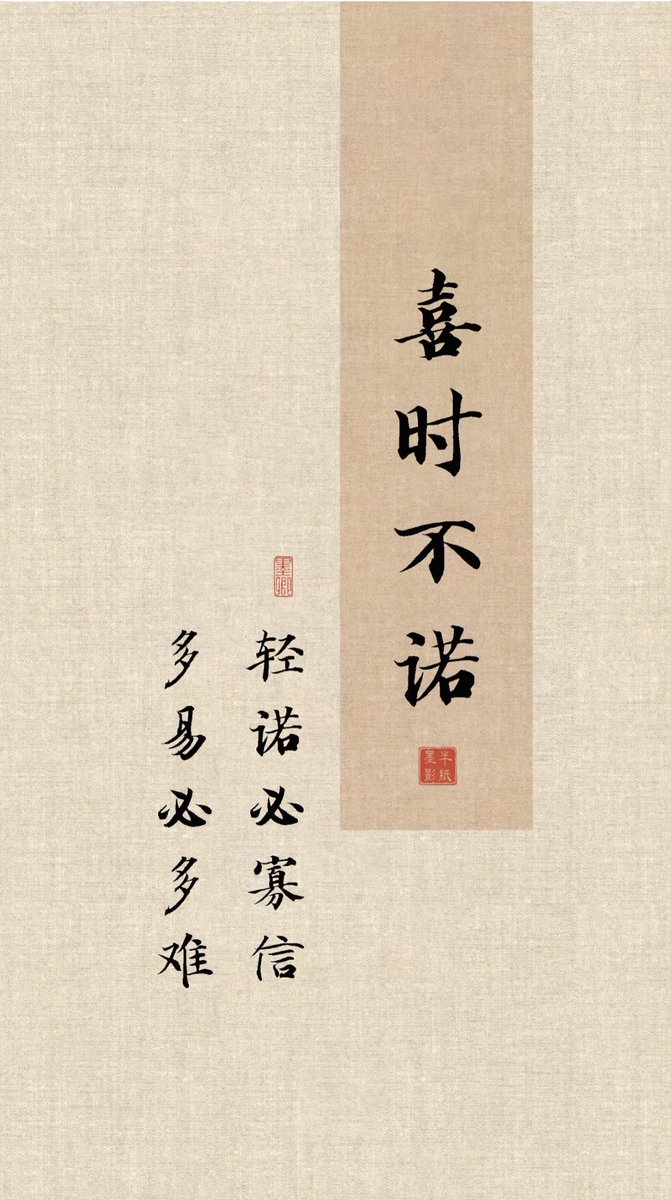 喜时不诺
半纸墨影
墨卿
轻诺必寡信
多易必多难